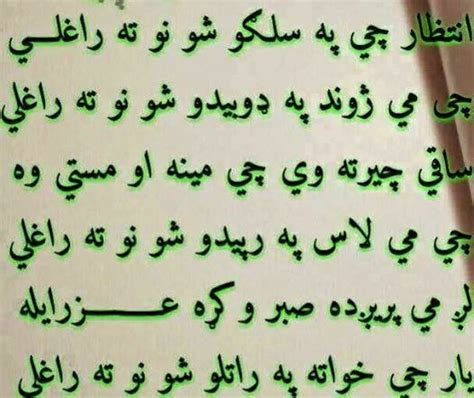 انتظار چي په سلګو شو نو ته راغلــي
چی مي ژوند په ډوبیدو شو نو ته راغلي
ساقي چیرته وي چي مینه او مستي وه
چي مي لاس په رپیدو شو نو ته راغلي
لږ مي پریږده صبر وکړه عــــزرایله
یار چي خواته په راتلو شو نو ته راغلي